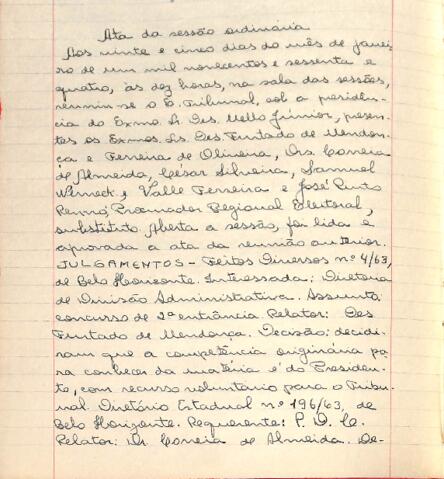 Ata da sessão ordinária
Aos vinte e cinco dias do mês de janei-
ro de um mil novecentos e sessenta e
quatro, às dez horas, na sala das sessões,
reuniu-se o E. Tribunal, sob a presidên-
cia do Exmo. Sr. Des. Mello Júnior, presen-
tes os Exmos. Srs. Des. Furtado de Mendon-
ça e Ferreira de Oliveira, Drs. Correia
de Almeida, César Silveira, Samuel
Werneck e Valle Ferreira e José Pinto
Rennó, Procurador Regional Eleitoral,
substituto. Aberta a sessão, foi lida e
aprovada a ata da reunião anterior.
JULGAMENTOS - Feitos Diversos nº 4/63,
de Belo Horizonte. Interessada: Diretoria
de Divisão Administrativa. Assunto:
concurso de 2ª entrância. Relator: Des.
Furtado de Mendonça. Decisão: decidi-
ram que a competência originária pa-
ra conhecer da matéria é do Presiden-
te, com recurso voluntário para o Tribu-
nal. Diretório Estadual nº 196/63, de
Belo Horizonte. Requerente: P. D. C.
Relator: Dr. Correia de Almeida. De-